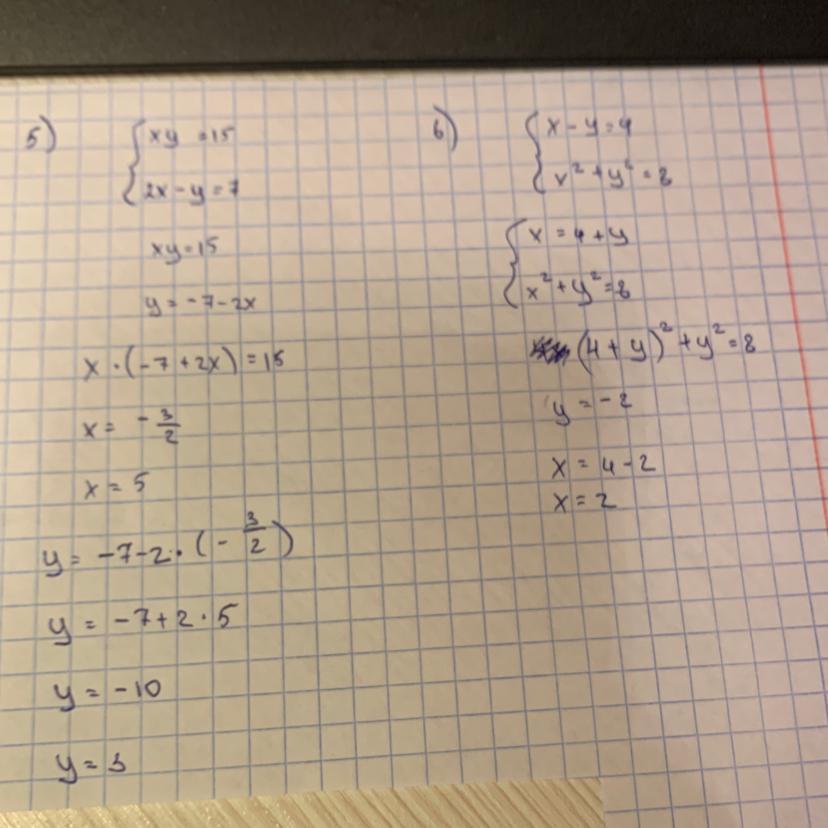 5)
xy = 15
2x - y = 7
xy = 15
y = -7 - 2x
x · (-7 + 2x) = 15
x = - 3/2
x = 5
y = -7 - 2 · (- 3/2)
y = -7 + 2 · 5
y = -10
y = 3
6)
x - y = 4
x² + y² = 8
x = 4 + y
x² + y² = 8
(4 + y)² + y² = 8
y = -2
x = 4 - 2
x = 2